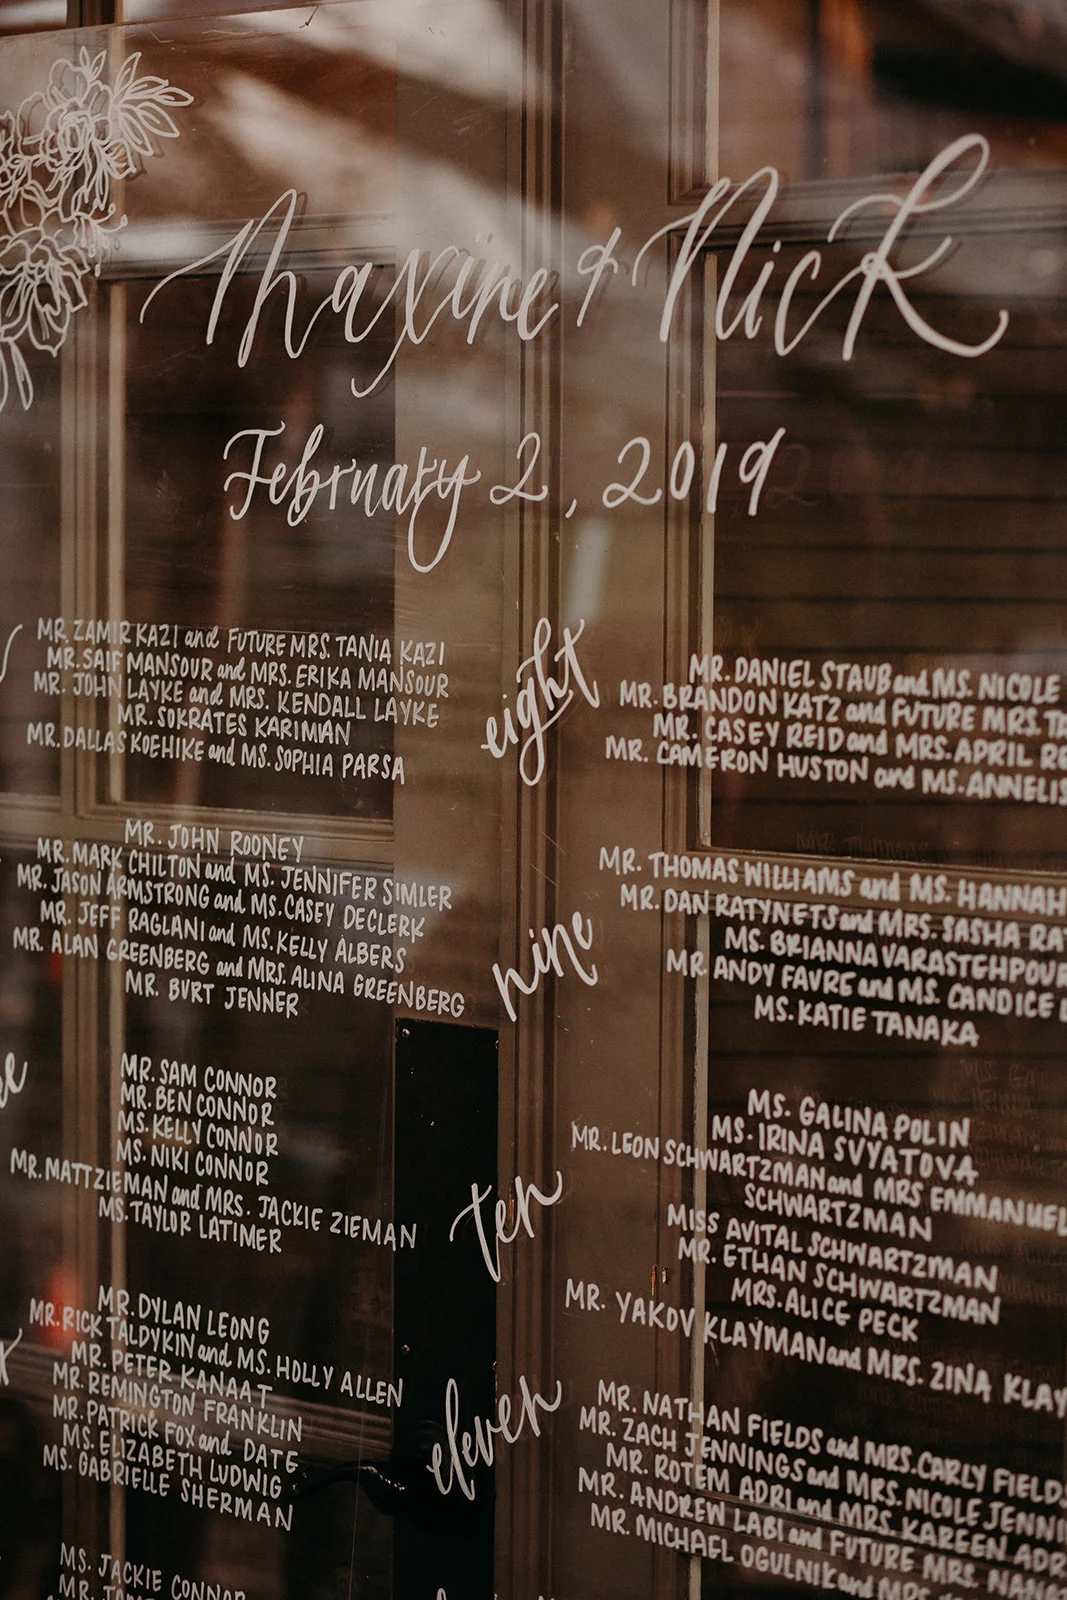 Maxine & Nick
February 2, 2019
MR. ZAMIR KAZI and FUTURE MRS. TANIA KAZI
MR. SAIF MANSOUR and MRS. ERIKA MANSOUR
MR. JOHN LAYKE and MRS. KENDALL LAYKE
MR. SOKRATES KARIMAN
MR. DALLAS KOEHIKE and MS. SOPHIA PARSA
MR. JOHN ROONEY
MR. MARK CHILTON and MS. JENNIFER SIMLER
MR. JASON ARMSTRONG and MS. CASEY DECLERK
MR. JEFF RAGLANI and MS. KELLY ALBERS
MR. ALAN GREENBERG and MRS. ALINA GREENBERG
MR. BURT JENNER
MR. SAM CONNOR
MR. BEN CONNOR
MS. KELLY CONNOR
MS. NIKI CONNOR
MR. MATT ZIEMAN and MRS. JACKIE ZIEMAN
MS. TAYLOR LATIMER
MR. DYLAN LEONG
MR. RICK TALDYKIN and MS. HOLLY ALLEN
MR. PETER KANAAT
MR. REMINGTON FRANKLIN
MR. PATRICK FOX and DATE
MS. ELIZABETH LUDWIG
MS. GABRIELLE SHERMAN
MS. JACKIE CONNOR
MR.
eight
MR. DANIEL STAUB and MS. NICOLE
MR. BRANDON KATZ and FUTURE MRS. TA
MR. CASEY REID and MRS. APRIL RE
MR. CAMERON HUSTON and MS. ANNELIS
nine
MR. THOMAS WILLIAMS and MS. HANNAH
MR. DAN RATYNETS and MRS. SASHA RA
MS. BRIANNA VARASTEHPOUR
MR. ANDY FAVRE and MS. CANDICE
MS. KATIE TANAKA
ten
MS. GALINA POLIN
MS. IRINA SVYATOVA
MR. LEON SCHWARTZMAN and MRS EMMANUEL
SCHWARTZMAN
MISS AVITAL SCHWARTZMAN
MR. ETHAN SCHWARTZMAN
MRS. ALICE PECK
MR. YAKOV KLAYMAN and MRS. ZINA KLAY
eleven
MR. NATHAN FIELDS and MRS. CARLY FIELDS
MR. ZACH JENNINGS and MRS. NICOLE JENNI
MR. ROTEM ADRI and MRS. KAREEN ADR
MR. ANDREW LABI and FUTURE MRS.
MR. MICHAEL OGULNIK and MRS